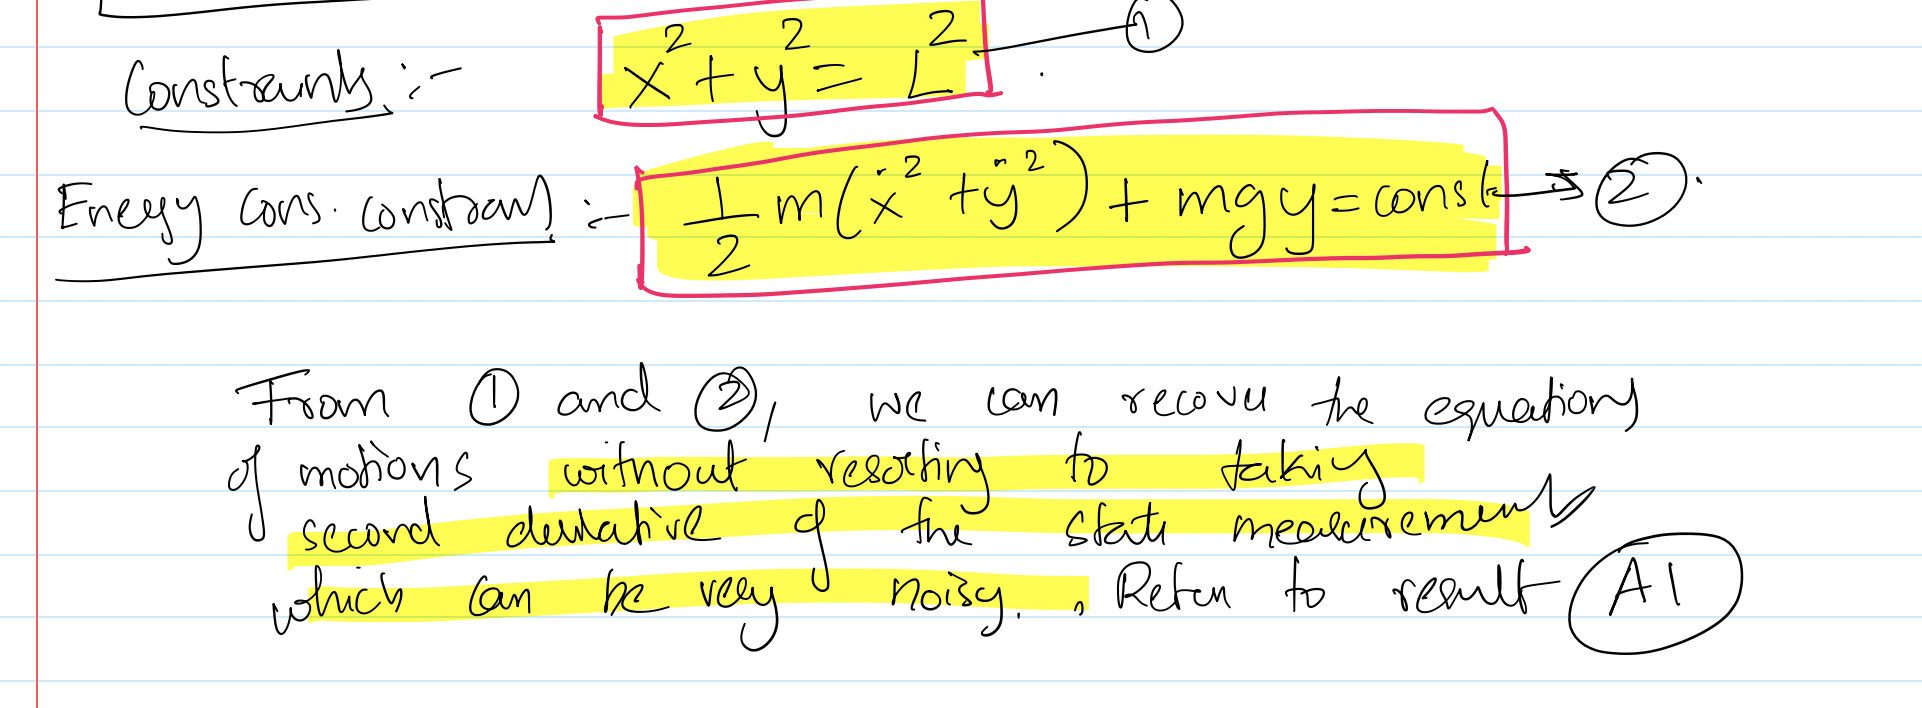 Constraints :- x² + y² = L² — ①
Energy cons. constraint :- 1/2 m(ẋ² + ẏ²) + mgy = const → ②.
From ① and ②, we can recover the equations
of motions without resorting to taking
second derivative of the state measurements
which can be very noisy. Refer to result A1